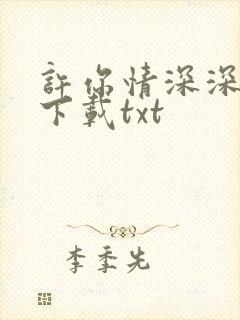 許你情深深
下載txt
李季先